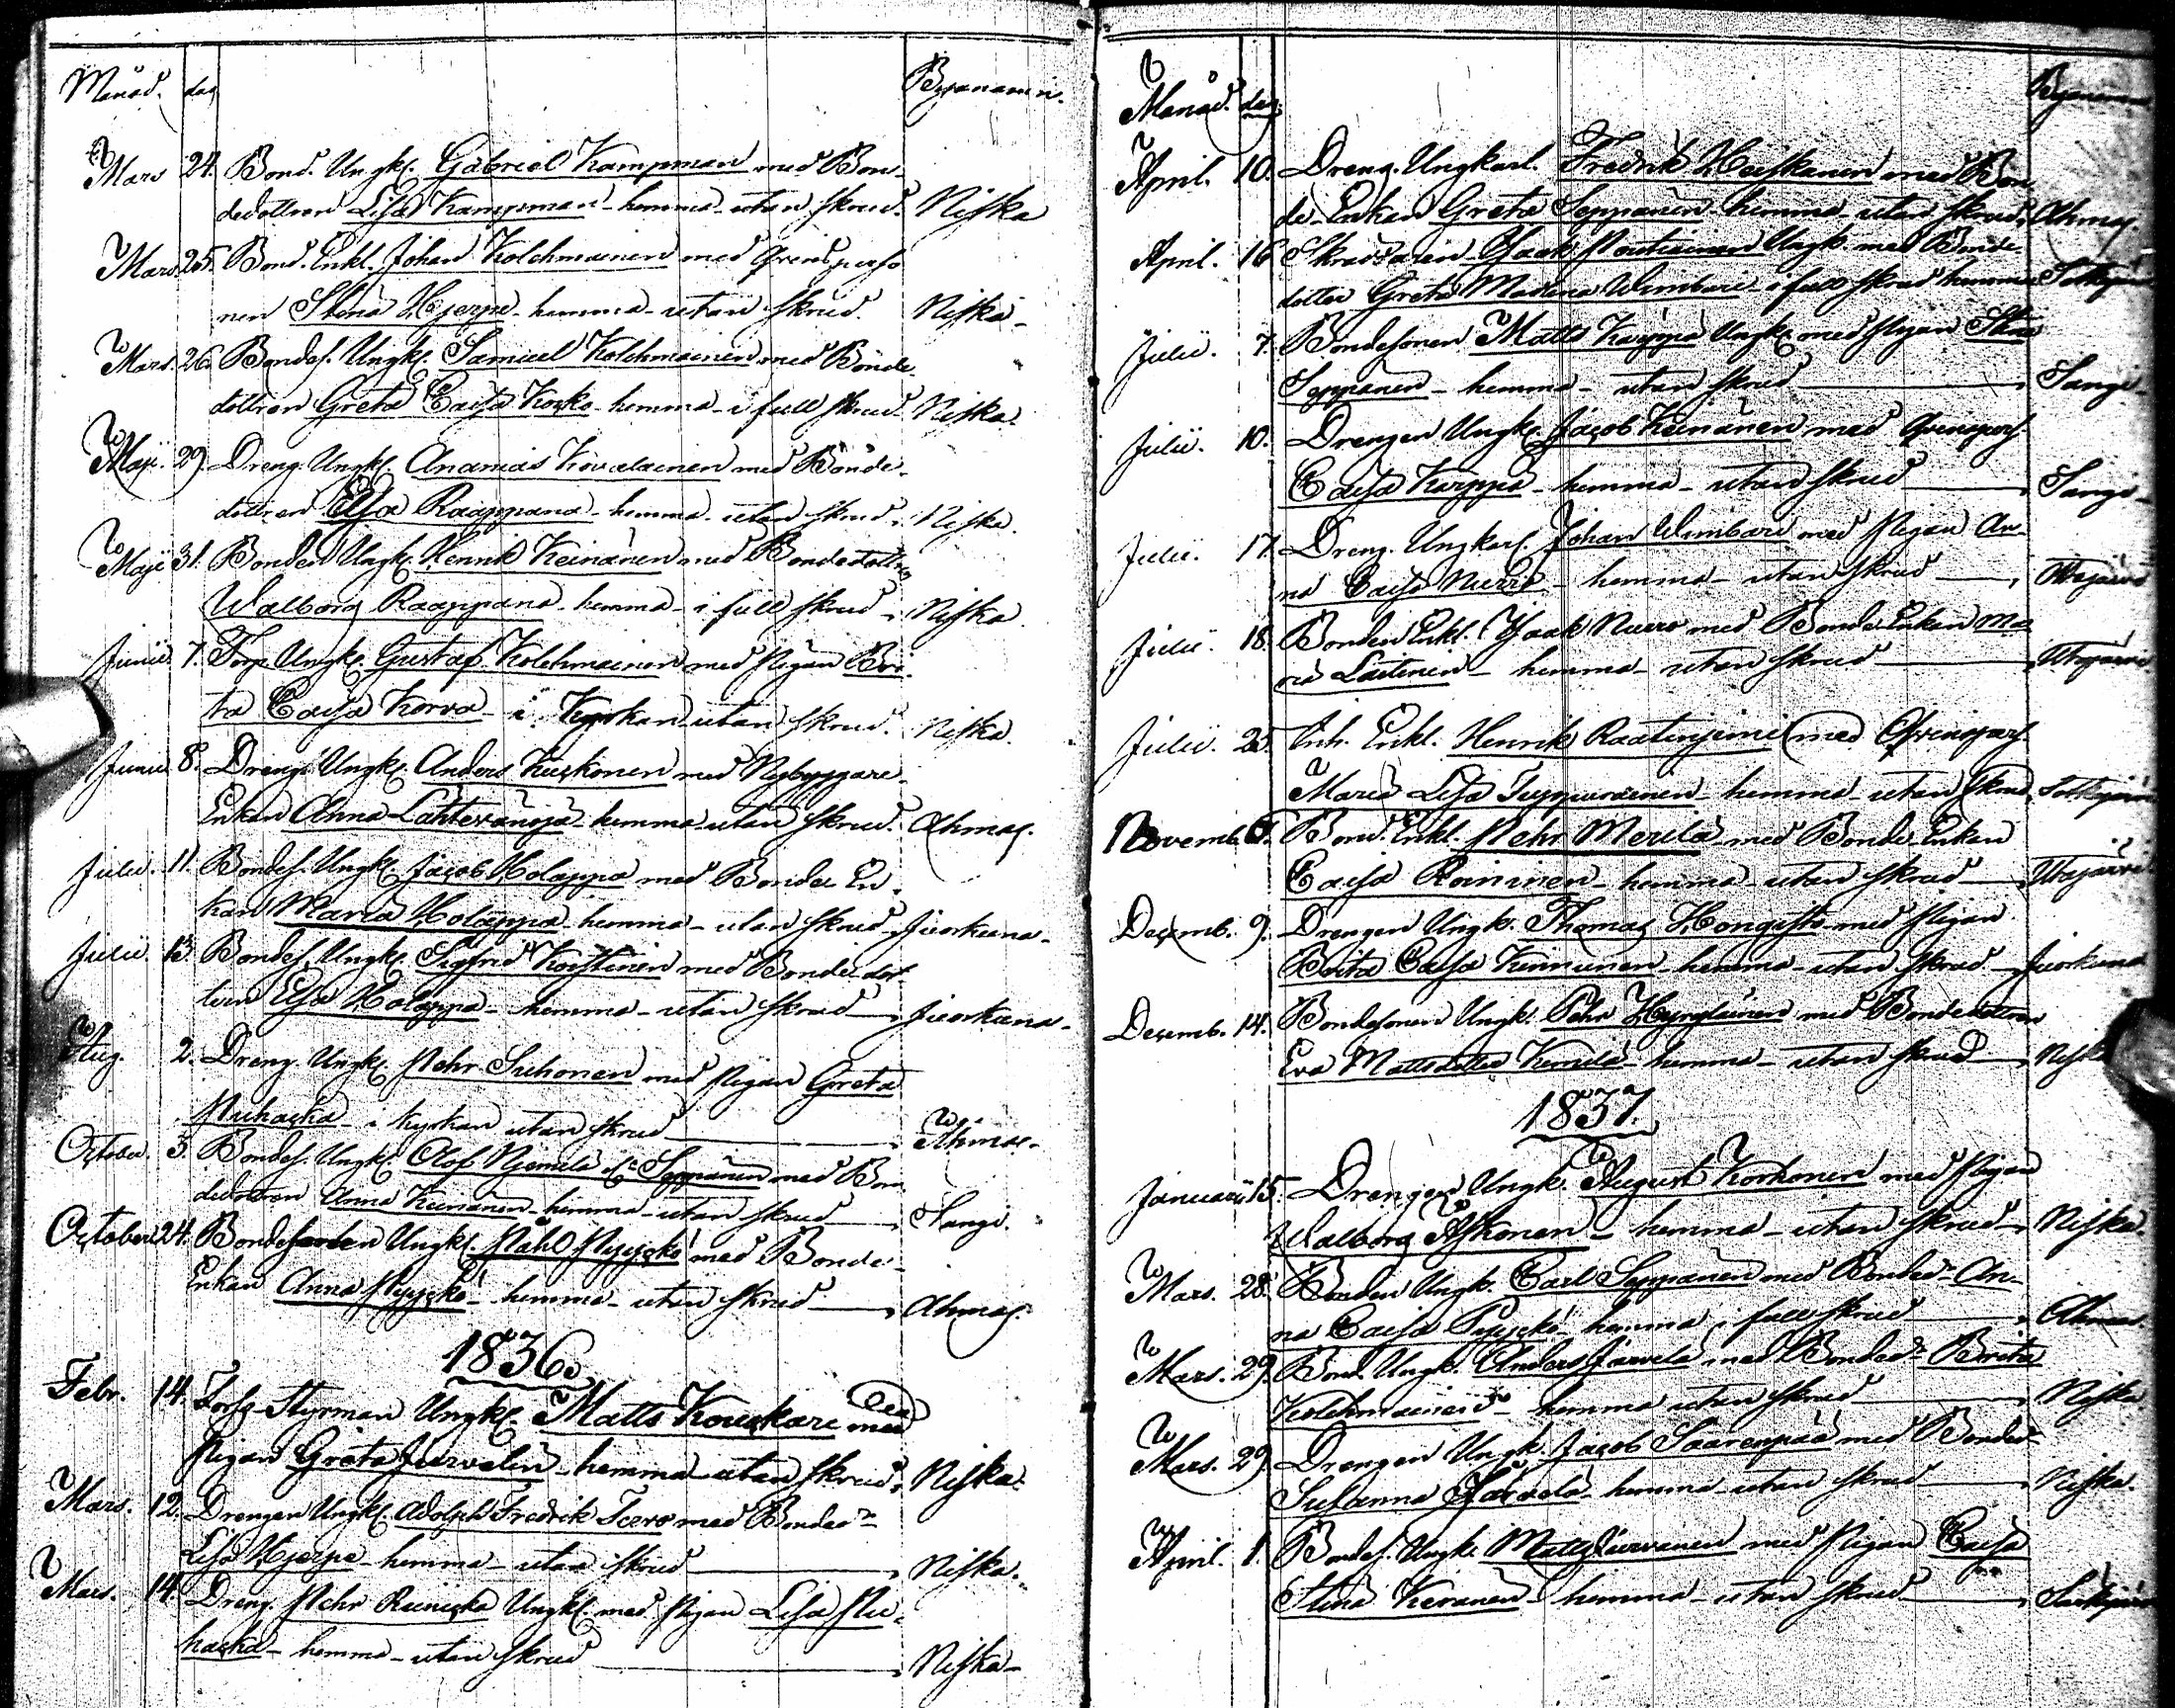 Månad. dag Bynamn.
Mars 24. Bond. Ungkl. Gabriel Kampman med Bon-
dedottren Lisa Kampman - hemma - utan skrud. Niska
Mars 25. Bond. Enkl. Johan Kolehmainen med Qvinsperso
nen Stina Hjerpe - hemma - utan skrud. Niska -
Mars. 26. Bondes. Ungkl. Samuel Kolehmainen med Bonde
dottren Greta Caisa Korko - hemma - i full skrud - Niska.
Maji. 29 Dreng. Ungkl. Ananias Kovalainen med Bonde-
dottren Elsa Raappana - hemma - utan skrud. Niska.
Maji 31. Bonden Ungkl. Henrik Keinänen med Bondedottren
Walborg Raappana - hemma - i full skrud - Niska.
Junii 7. Torp. Ungkl. Gustaf Kolehmainen med Pigan Bri-
ta Caisa Korva - i Kyrkan utan skrud. Niska.
Junii 8. Dreng. Ungkl. Anders Kuskonen med Nybyggare-
Enkan Anna Lähtevänoja - hemma - utan skrud. Ahmas.
Julii. 11. Bondes. Ungkl. Jacob Holappa med Bonde En-
kan Maria Holappa - hemma - utan skrud - Juorkuna -
Julii. 13. Bondes. Ungkl. Sigfrid Koistinen med Bondedot-
tren Elsa Holappa - hemma - utan skrud - Juorkuna -
Aug. 2. Dreng. Ungkl. Pehr Suhonen med Pigan Greta
Puhacka - i kyrkan utan skrud - Ahmas -
October. 3. Bondes. Ungkl. Olof Njemelä el. Seppänen med Bon
dedottren Anna Keinänen - hemma - utan skrud - Sangi.
October 24. Bondesonen Ungkl. Påhl Pyyckö med Bonde-
Enkan Anna Pyyckö - hemma - utan skrud - Ahmas.
1836.
Febr. 14. Fors-Styrman Ungkl. Matts Kouckari med
Pigan Greta Juvelin - hemma - utan skrud - Niska.
Mars. 12. Drengen Ungkl. Adolph Fredrik Tervo med Bonded:r
Lisa Hjerpe - hemma - utan skrud - Niska.
Mars. 14. Dreng. Pehr Reinicka Ungkl. med Pigan Lisa Pu-
hacka - hemma - utan skrud - Niska -
Månad. dag.
April. 10. Dreng. Ungkarl. Fredrik Heiskanen med Bon
de-Enkan Greta Seppänen - hemma - utan skrud. Ahmas.
April. 16 Skräddaren Isaak Poutiainen Ungk. med Bonde
dotter Greta Madlena Wimbari - i full skrud hemma
Julii. 7. Bondesonen Matts Karppa Ungk. med Pigan Stina
Seppänen - hemma - utan skrud - Sangi -
Julii. 10. Drengen Ungk. Jacob Keinänen med Qvinspers
Caisa Karppa - hemma - utan skrud - Sangi -
Julii. 17. Dreng. Ungkarl. Johan Wimbari med Pigan An-
na Caisa Nurro - hemma - utan skrud - Utajärvi
Julii. 18. Bonden Enkl. Isaak Nurro med Bonde-Enkan Ma
ria Laitinen - hemma - utan skrud - Utajärvi
Julii. 25. Inh. Enkl. Henrik Raatinjemi med Qvinspers.
Maria Lisa Tuppurainen - hemma - utan skrud,
Novemb. 6. Bond. Enkl. Pehr Merilä - med Bonde-Enkan
Caisa Roininen - hemma - utan skrud - Utajärvi
Decemb. 9. Drengen Ungk. Thomas Hongisto - med Pigan
Brita Caisa Kinnunen - hemma - utan skrud - Juorkuna
Decemb. 14. Bondesonen Ungk. Pehr Hyryläinen med Bondedottren
Eva Mattsdotter - hemma - utan skrud - Niska
1837.
Januarii 15. Drengen Ungk. August Korhonen med Pigan
Walborg Tiskonen - hemma - utan skrud - Niska.
Mars. 28. Bonden Ungk. Carl Seppänen med Bonded:r An-
na Caisa Pyyckö - hemma i full skrud - Ahmas.
Mars. 29. Bond. Ungk. Anders Järvelä med Bonded:r Brita
Kolehmainen - hemma utan skrud - Niska
Mars. 29. Drengen Ungk. Jacob Saarenpää med Bonded
Susanna Järvelä - hemma - utan skrud - Niska.
April. 1. Bondes. Ungk. Matts Juvanen med Pigan Caisa
Stina Keränen - hemma - utan skrud -